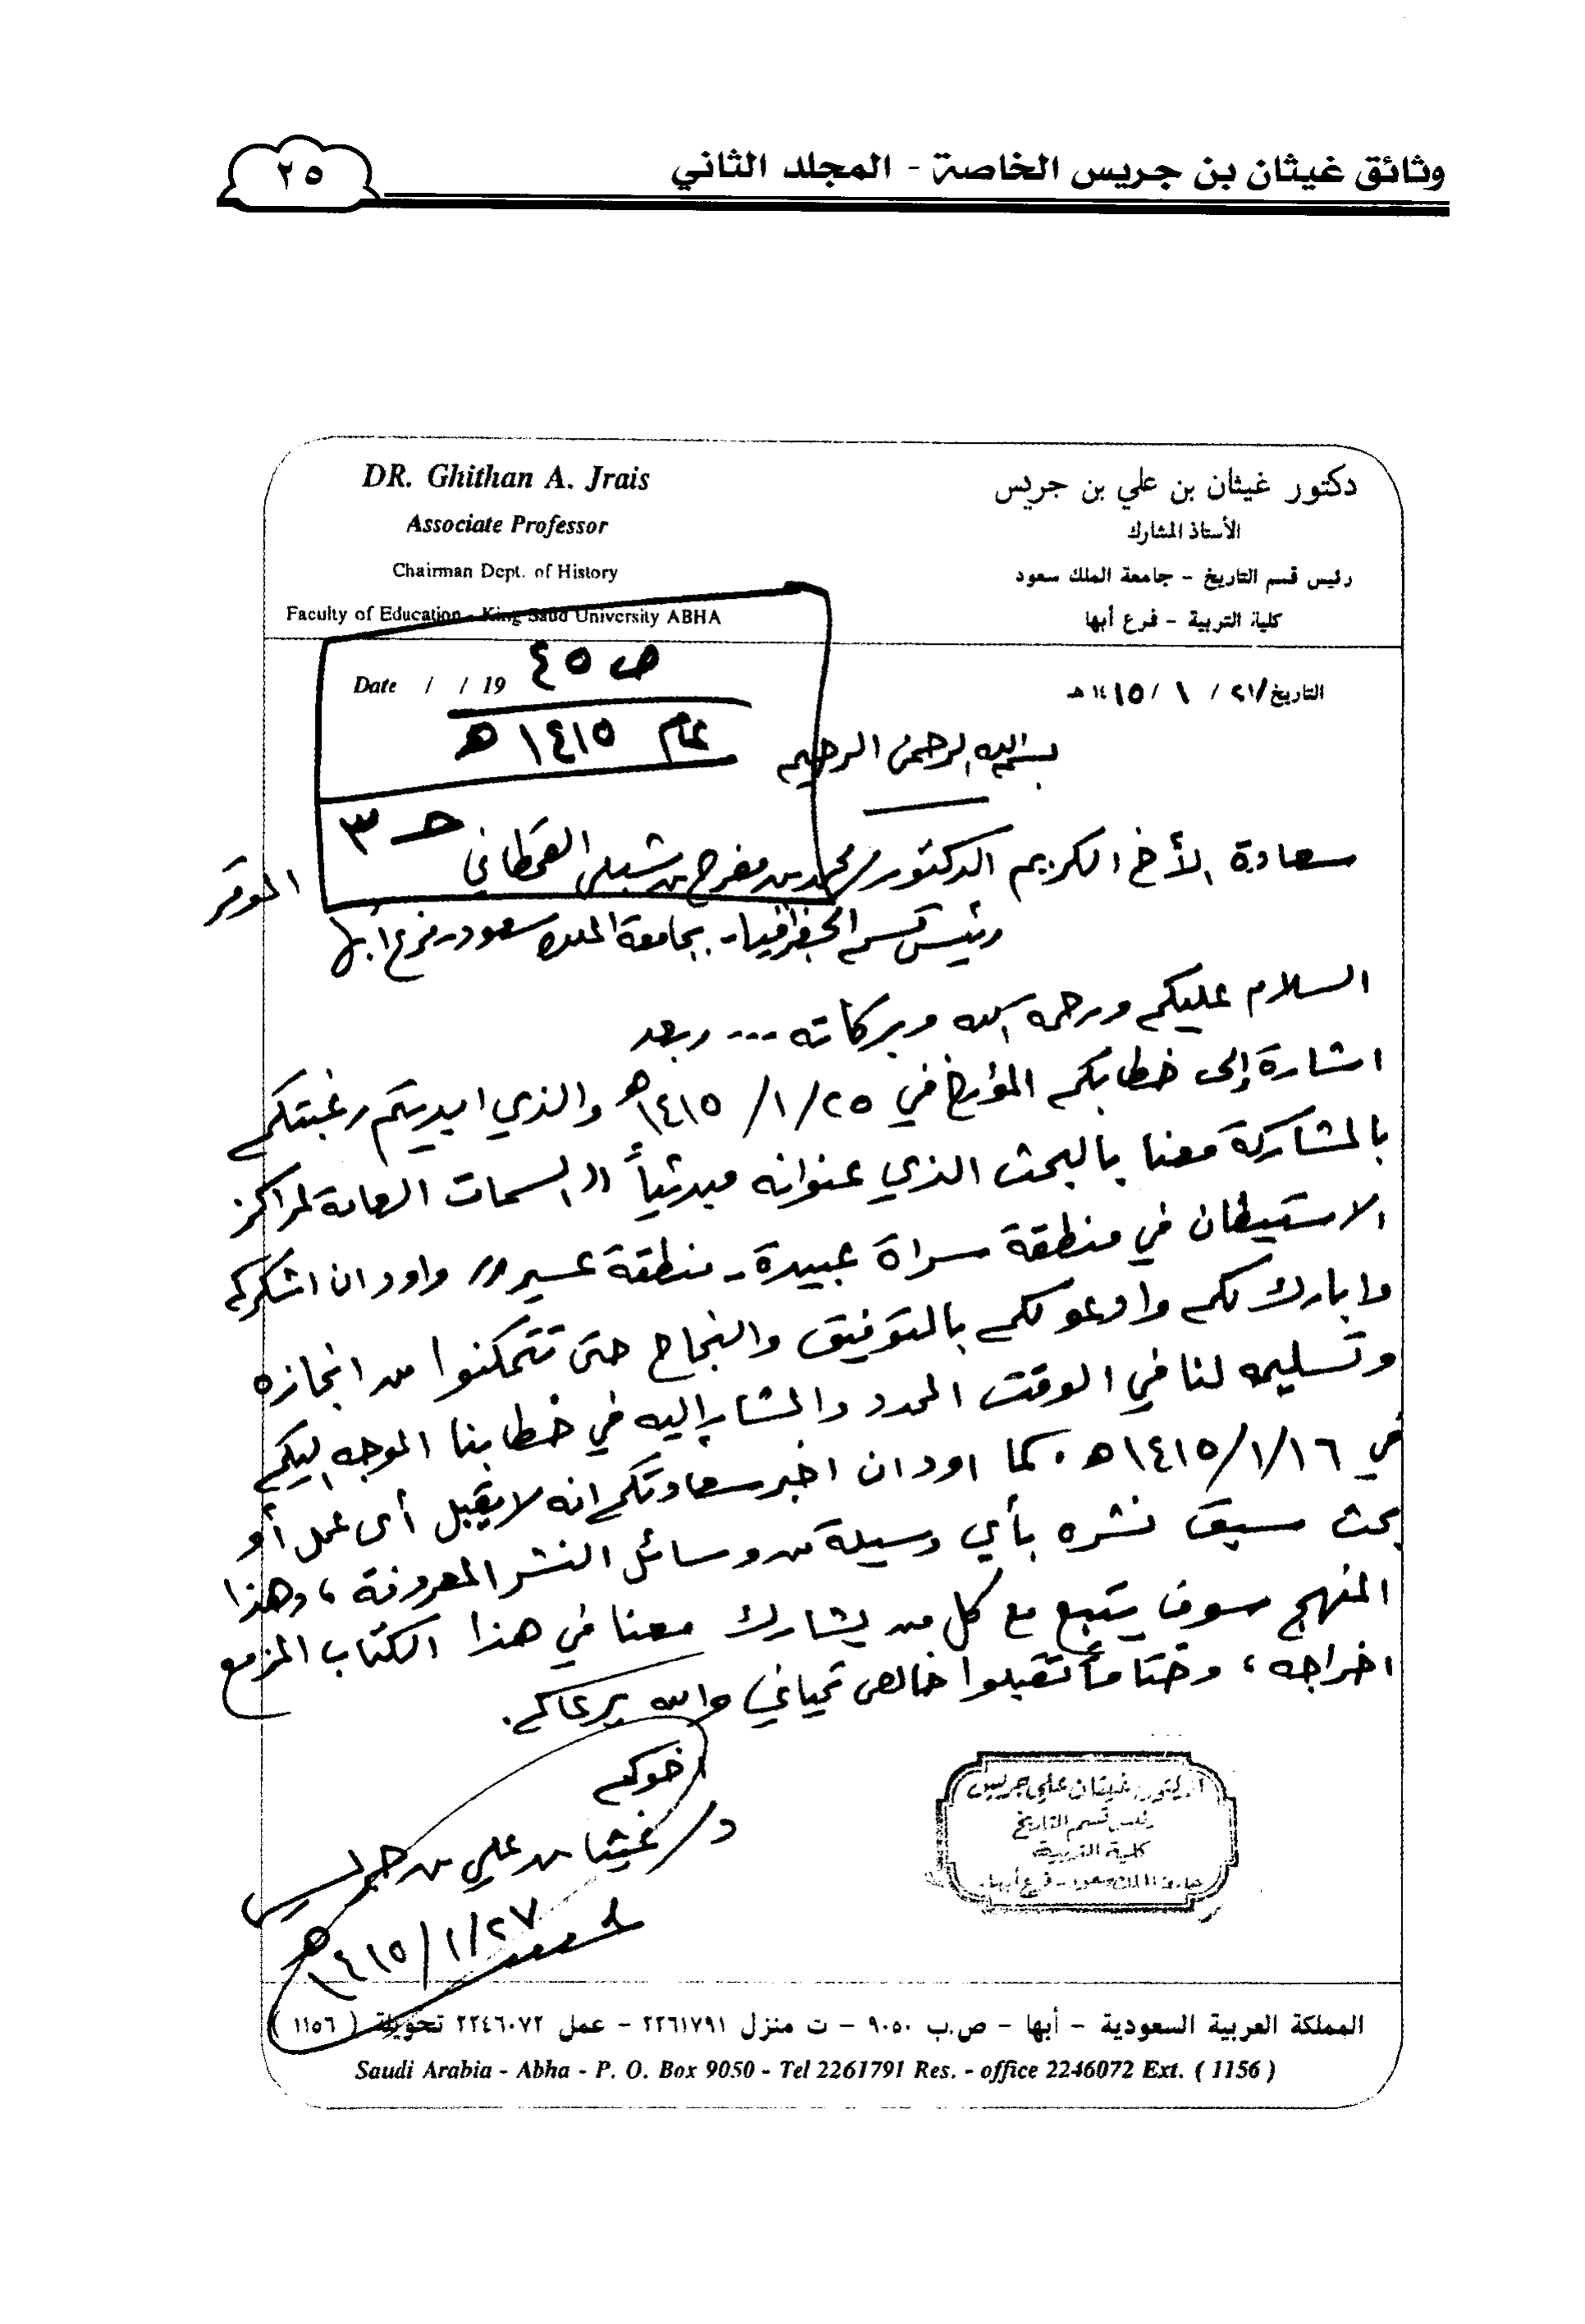 وثائق غيثان بن جريس الخاصة - المجلد الثاني
٢٥
دكتور غيثان بن علي بن جريس
الأستاذ المشارك
رئيس قسم التاريخ - جامعة الملك سعود
كلية التربية - فرع أبها
DR. Ghithan A. Jrais
Associate Professor
Chairman Dept. of History
Faculty of Education - King Saud University ABHA
التاريخ ٢٧ / ١ / ١٤١٥ هـ
Date / / 19
ص ٤٥
عام ١٤١٥ هـ
حـ ٣
بسم الله الرحمن الرحيم
سعادة الأخ الكريم الدكتور / محمد بن مفرح بن شبلي القحطاني الموقر
رئيس قسم الجغرافيا - بجامعة الملك سعود - فرع ابها
السلام عليكم ورحمة الله وبركاته --- وبعد
اشارة إلى خطابكم المؤرخ في ٢٥ / ١ / ١٤١٥هـ والذي ابديتم رغبتكم
بالمشاركة معنا بالبحث الذي عنوانه مبدئياً " السمات العامة لمراكز
الاستيطان في منطقة سراة عبيدة - منطقة عسير " واود ان اشكركم
وابارك لكم وادعو لكم بالتوفيق والنجاح حتى تتمكنوا من انجازه
وتسليمه لنا في الوقت المحدد والمشار إليه في خطابنا الموجه إليكم
في ١٦ / ١ / ١٤١٥ هـ . كما اود ان اخبر سعادتكم انه لا يقبل أى عمل أو
بحث سبق نشره بأي وسيلة من وسائل النشر المعروفة ، وهذا
المنهج سوف يتبع مع كل من يشارك معنا في هذا الكتاب المزمع
اخراجه ، وختاماً تقبلوا خالص تحياتي والله يرعاكم .
اخوكم
د / غيثان بن علي بن جريس
٢٧ / ١ / ١٤١٥هـ
الدكتور غيثان علي جريس
رئيس قسم التاريخ
كلية التربية
جامعة الملك سعود - فرع أبها
المملكة العربية السعودية - أبها - ص.ب ٩٠٥٠ - ت منزل ٢٢٦١٧٩١ - عمل ٢٢٤٦٠٧٢ تحويلة ( ١١٥٦ )
Saudi Arabia - Abha - P. O. Box 9050 - Tel 2261791 Res. - office 2246072 Ext. ( 1156 )